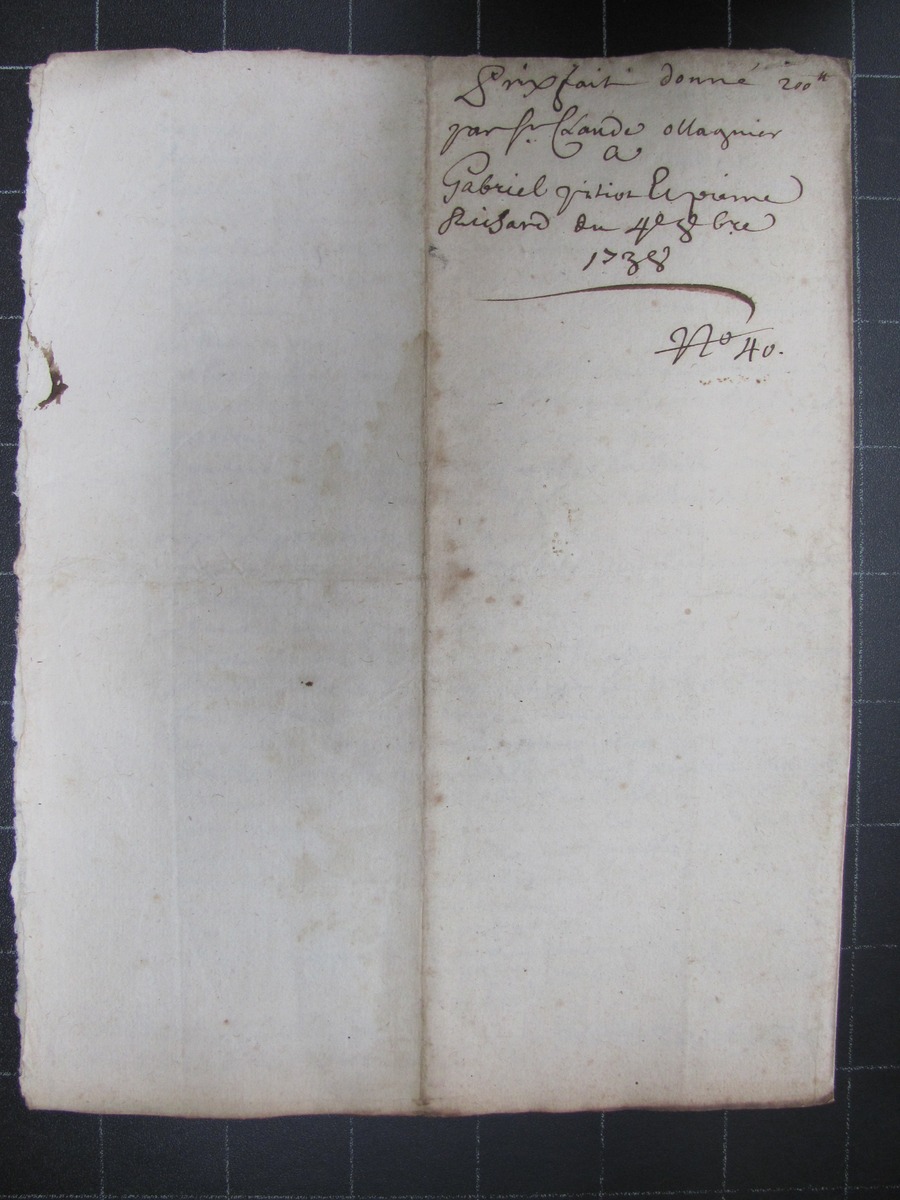 Prixfait donné 200tt
par Sr. Claude ollagnier
a
Gabriel pitiot Et pierre
Richard du 4e 8bre
1738
No 40.